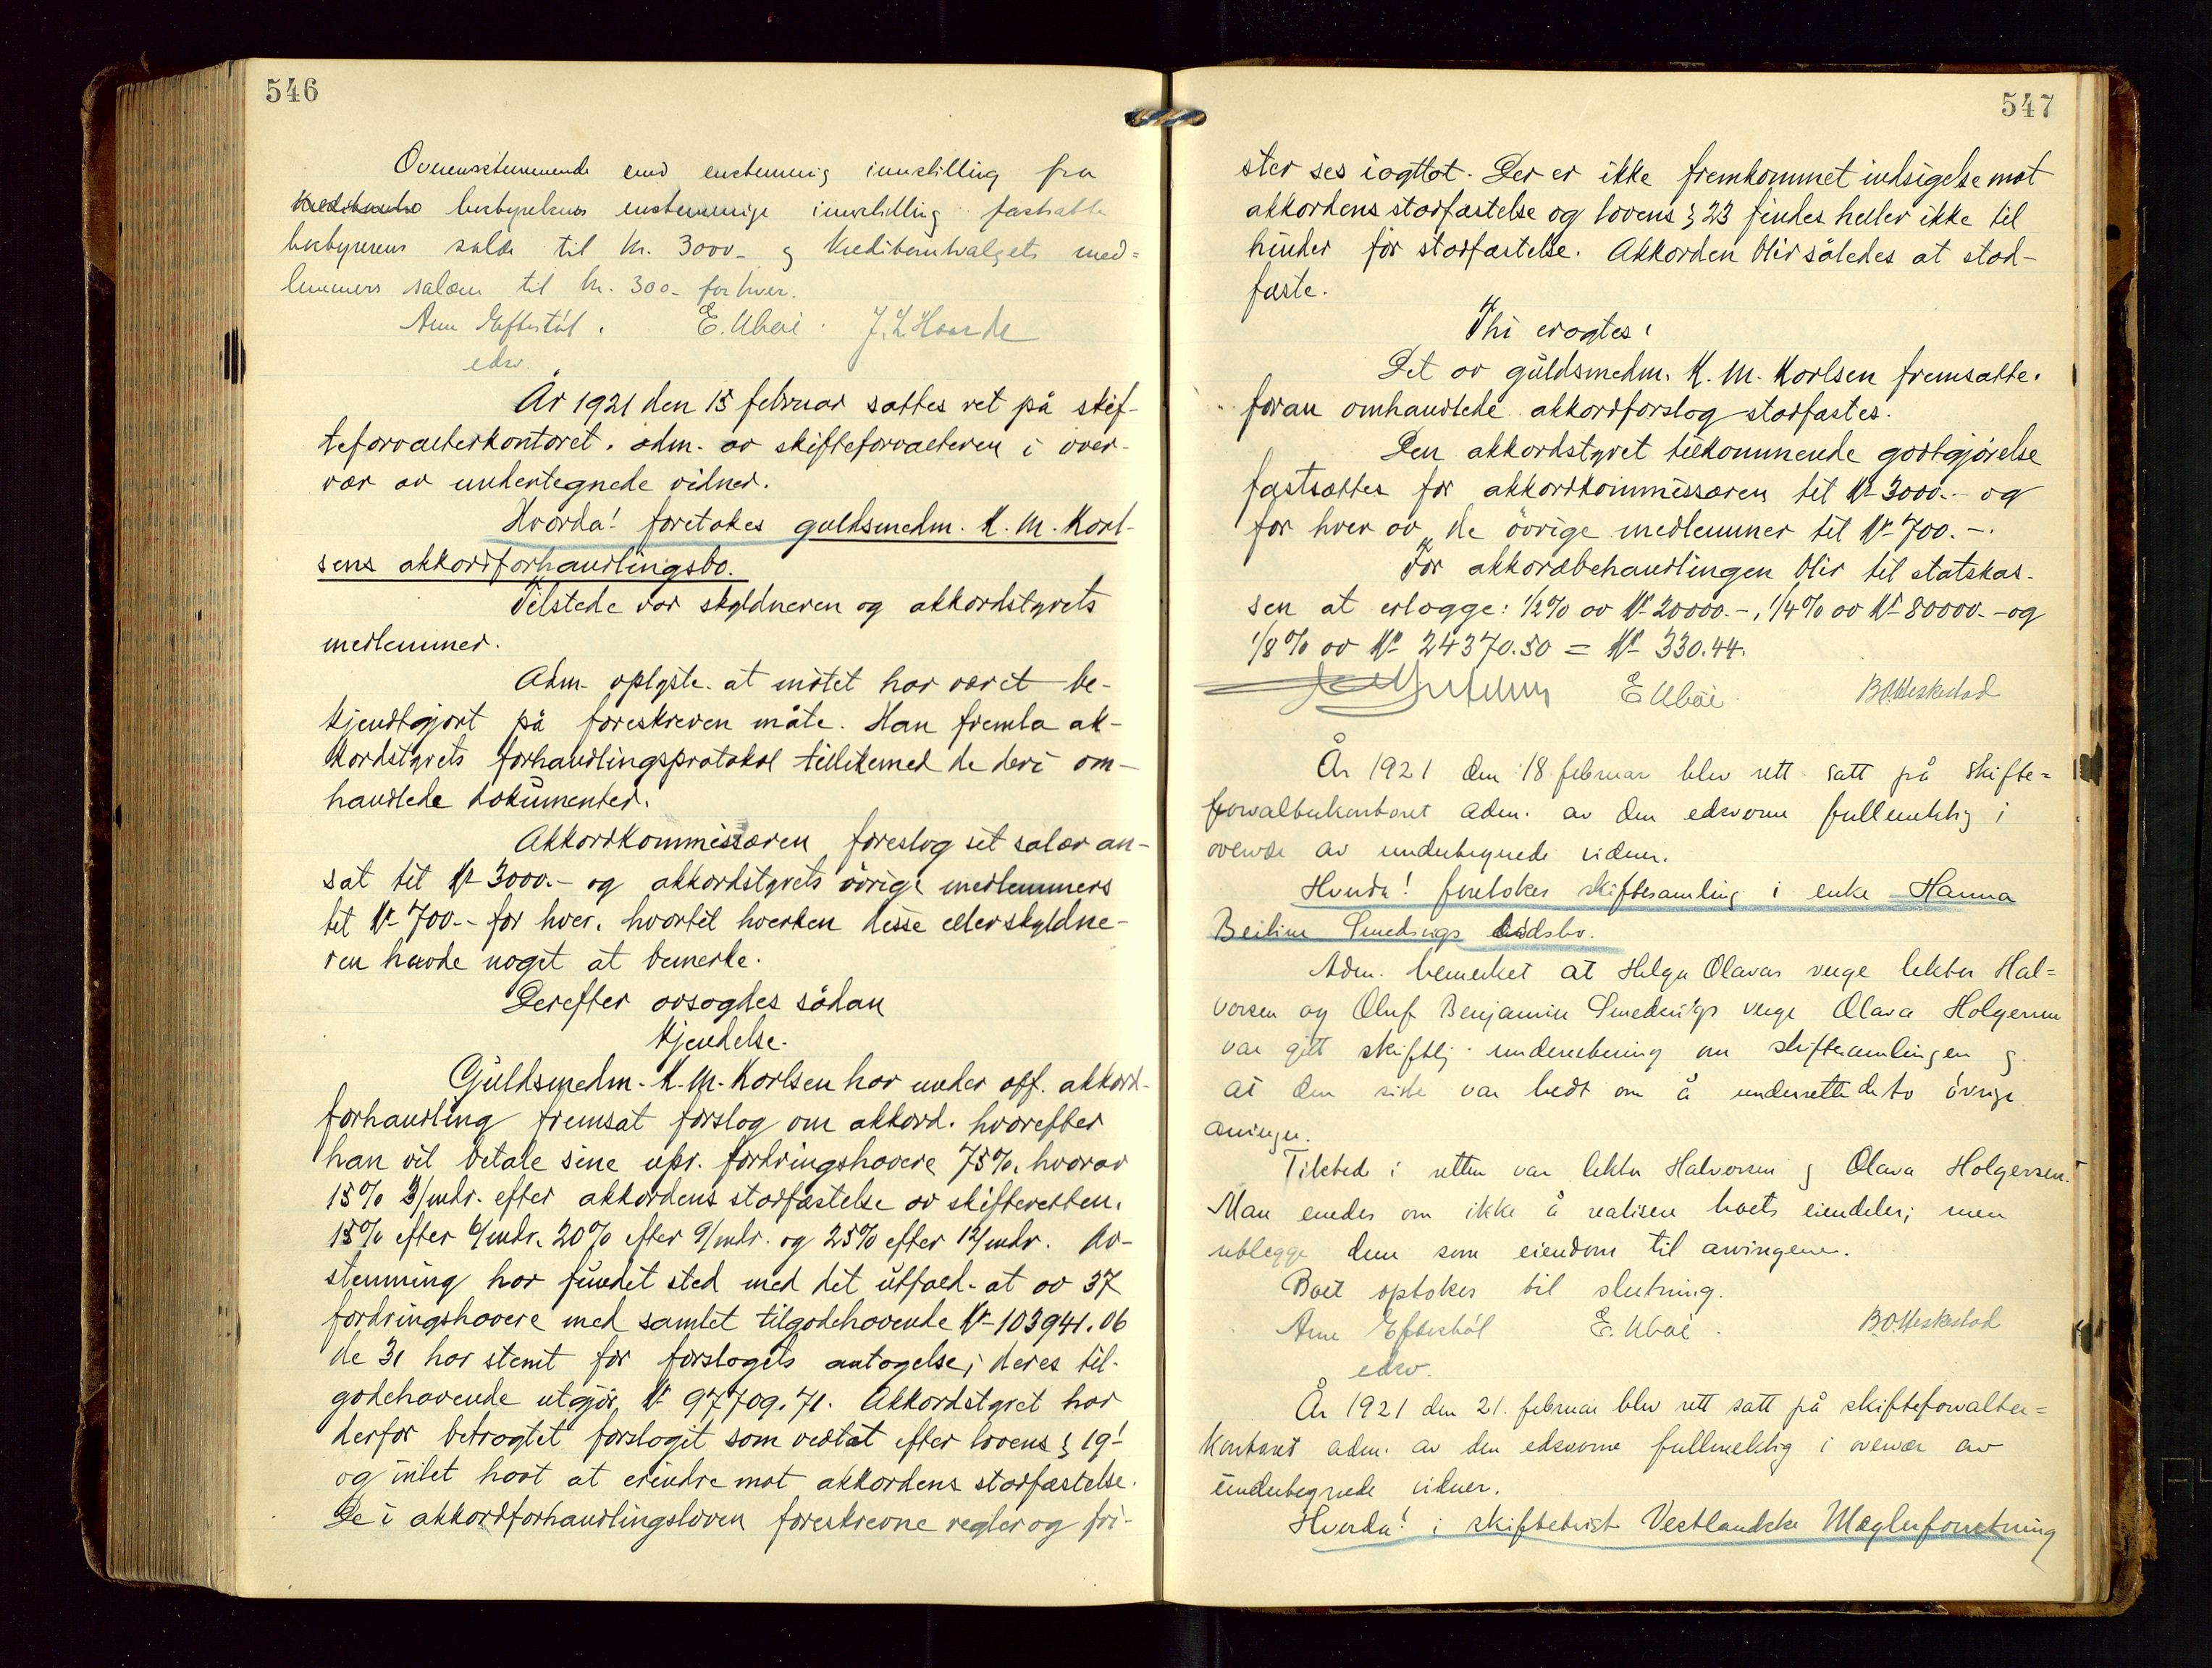 546
Overensstemmende med enstemmig innstilling fra
bobyrets enstemmige innstilling fastsatte
bobyrerens salær til kr. 3000.- og kreditorutvalgets med=
lemmers salær til kr. 300.- for hver.
Arne Eftestøl. E. Ubøe. J. L. Haarde
edsv.
År 1921 den 15 februar sattes ret på skif-
teforvalterkontoret. adm. av skifteforvalteren i over-
vær av undertegnede vidner.
Hvorda! foretokes guldsmedm. K. M. Karl-
sens akkordforhandlingsbo.
Tilstede var skyldneren og akkordstyrets
medlemmer.
Adm. oplyste at møtet har været be-
kjendtgjort på foreskreven måte. Han fremla ak-
kordstyrets forhandlingsprotokol tillikemed de deri om-
handlede dokumenter.
Akkordkommissæren foreslog sit salær an-
sat til kr 3000.- og akkordstyrets övrige medlemmers
til kr 700.- for hver. hvortil hverken disse eller skyldne-
ren havde noget at bemerke.
Derefter avsagdes sådan
kjendelse.
Guldsmedm. K. M. Karlsen har under off. akkord-
forhandling fremsat forslag om akkord. hvorefter
han vil betale sine upr. fordringshavere 75%. hvorav
15% 3/mdr. efter akkordens stadfæstelse av skifteretten.
15% efter 6/mdr. 20% efter 9/mdr. og 25% efter 12/mdr. Av-
stemning har fundet sted med det utfald. at av 37
fordringshavere med samlet tilgodehavende kr 103941.06
de 31 har stemt for forslagets antagelse; deres til-
godehavende utgjør kr 97709.71. Akkordstyret har
derfor betragtet forslaget som vedtat efter lovens § 19!
og intet havt at erindre mot akkordens stadfæstelse.
De i akkordforhandlingsloven foreskrevne regler og fri-
547
ster ses iagttat. Der er ikke fremkommet indsigelse mot
akkordens stadfæstelse og lovens § 23 findes heller ikke til
hinder for stadfæstelse. Akkorden blir således at stad-
fæste.
Thi eragtes:
Det av guldsmedm. K. M. Karlsen fremsatte.
foran omhandlede akkordforslag stadfæstes.
Den akkordstyret tilkommende godtgjørelse
fastsættes for akkordkommissæren til kr 3000.- og
for hver av de övrige medlemmer til kr 700.-.
For akkordbehandlingen blir til statskas-
sen at erlægge: 1/2% av kr 20000.-, 1/4% av kr 80000.- og
1/8% av kr 24370.50 = kr 330.44.
E Ubøe. B.O. Heskestad
År 1921 den 18 februar blev rett satt på skifte=
forvalterkontoret adm. av den edsvorne fullmektig i
overvær av undertegnede vidner.
Hvorda! foretokes skiftesamling i enke Hanna
Smedsvigs dødsbo.
Adm. bemerket at Helga Olavas verge lektor Hal=
vorsen og Oluf Benjamin Smedsvigs verge Olava Holgersen
var gitt skriftlig underretning om skiftesamlingen og
at den siste var bedt om å underrette de to övrige
arvinger.
Tilsted i retten var lektor Halvorsen og Olava Holgersen.
Man enedes om ikke å realisere boets eiendeler; men
utlegge dem som eiendom til arvingene.
Boet optokes til slutning.
Arne Eftestøl E. Ubøe. B.O. Heskestad
edsv.
År 1921 den 21. februar blev rett satt på skifteforvalter=
kontoret adm. av den edsvorne fullmektig i overvær av
undertegnede vidner.
Hvorda! i skiftetvist Vestlandske Mæglerforretning